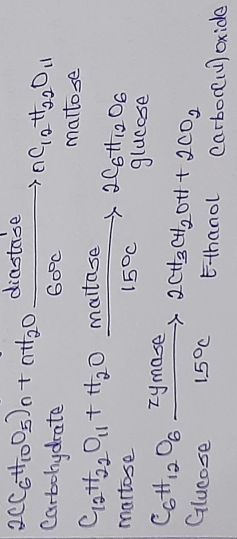 2(C6H10O5)n + nH2O diastase → nC12H22O11
Carbohydrate 60°C maltose
C12H22O11 + H2O maltase → 2C6H12O6
maltose 15°C glucose
C6H12O6 zymase → 2CH3CH2OH + 2CO2
Glucose 15°C Ethanol Carbon(iv)oxide